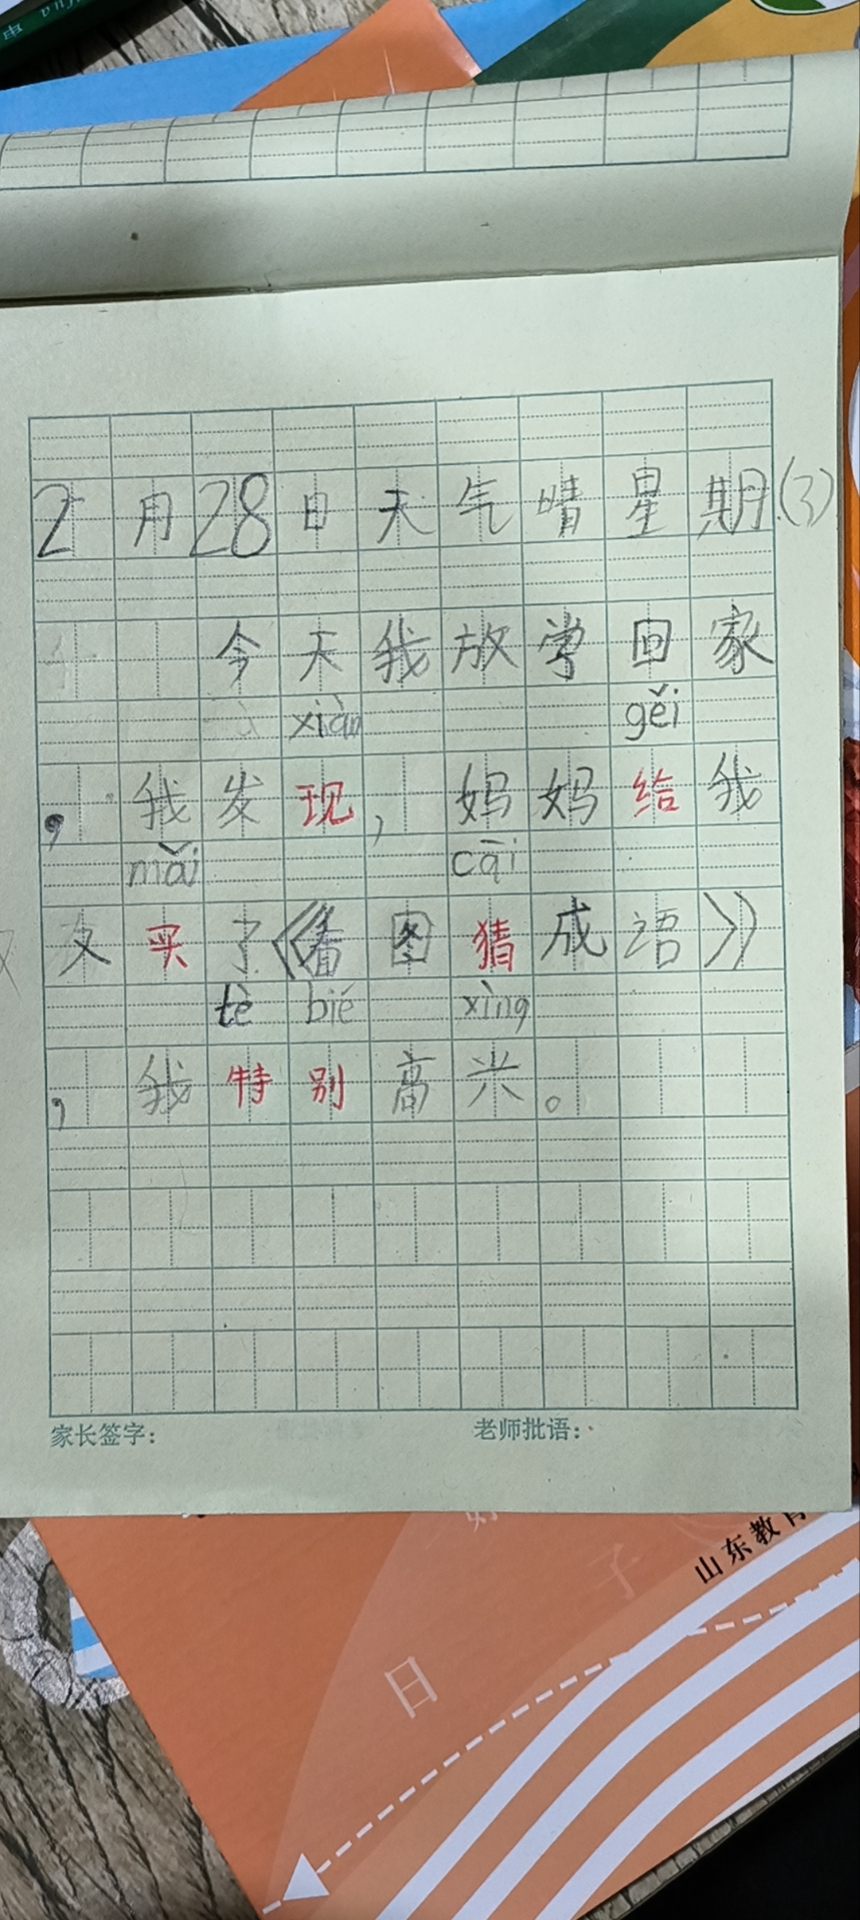 2月28日天气晴星期(3)
今天我放学回家
xiàn gěi
，我发现，妈妈给我
mǎi cāi
又买了《看图猜成语》
tè bié xìng
，我特别高兴。
家长签字： 老师批语：
山东教育
子
日